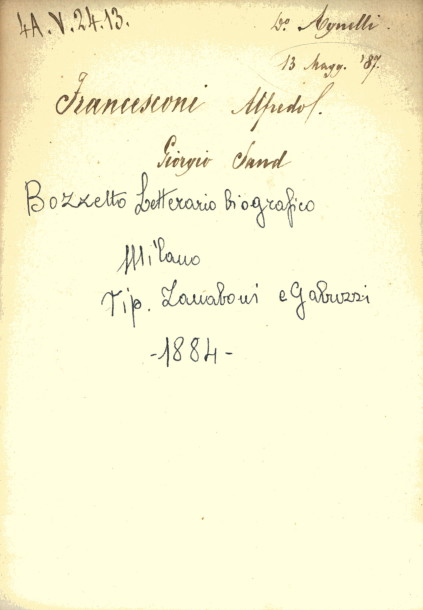 4A.V.24.13.
Do. Agnelli.
13 Magg. '87.
Francesconi Alfredo.
Giorgio Sand
Bozzetto Letterario biografico
Milano
Tip. Zanaboni e Gabuzzi
-1884-